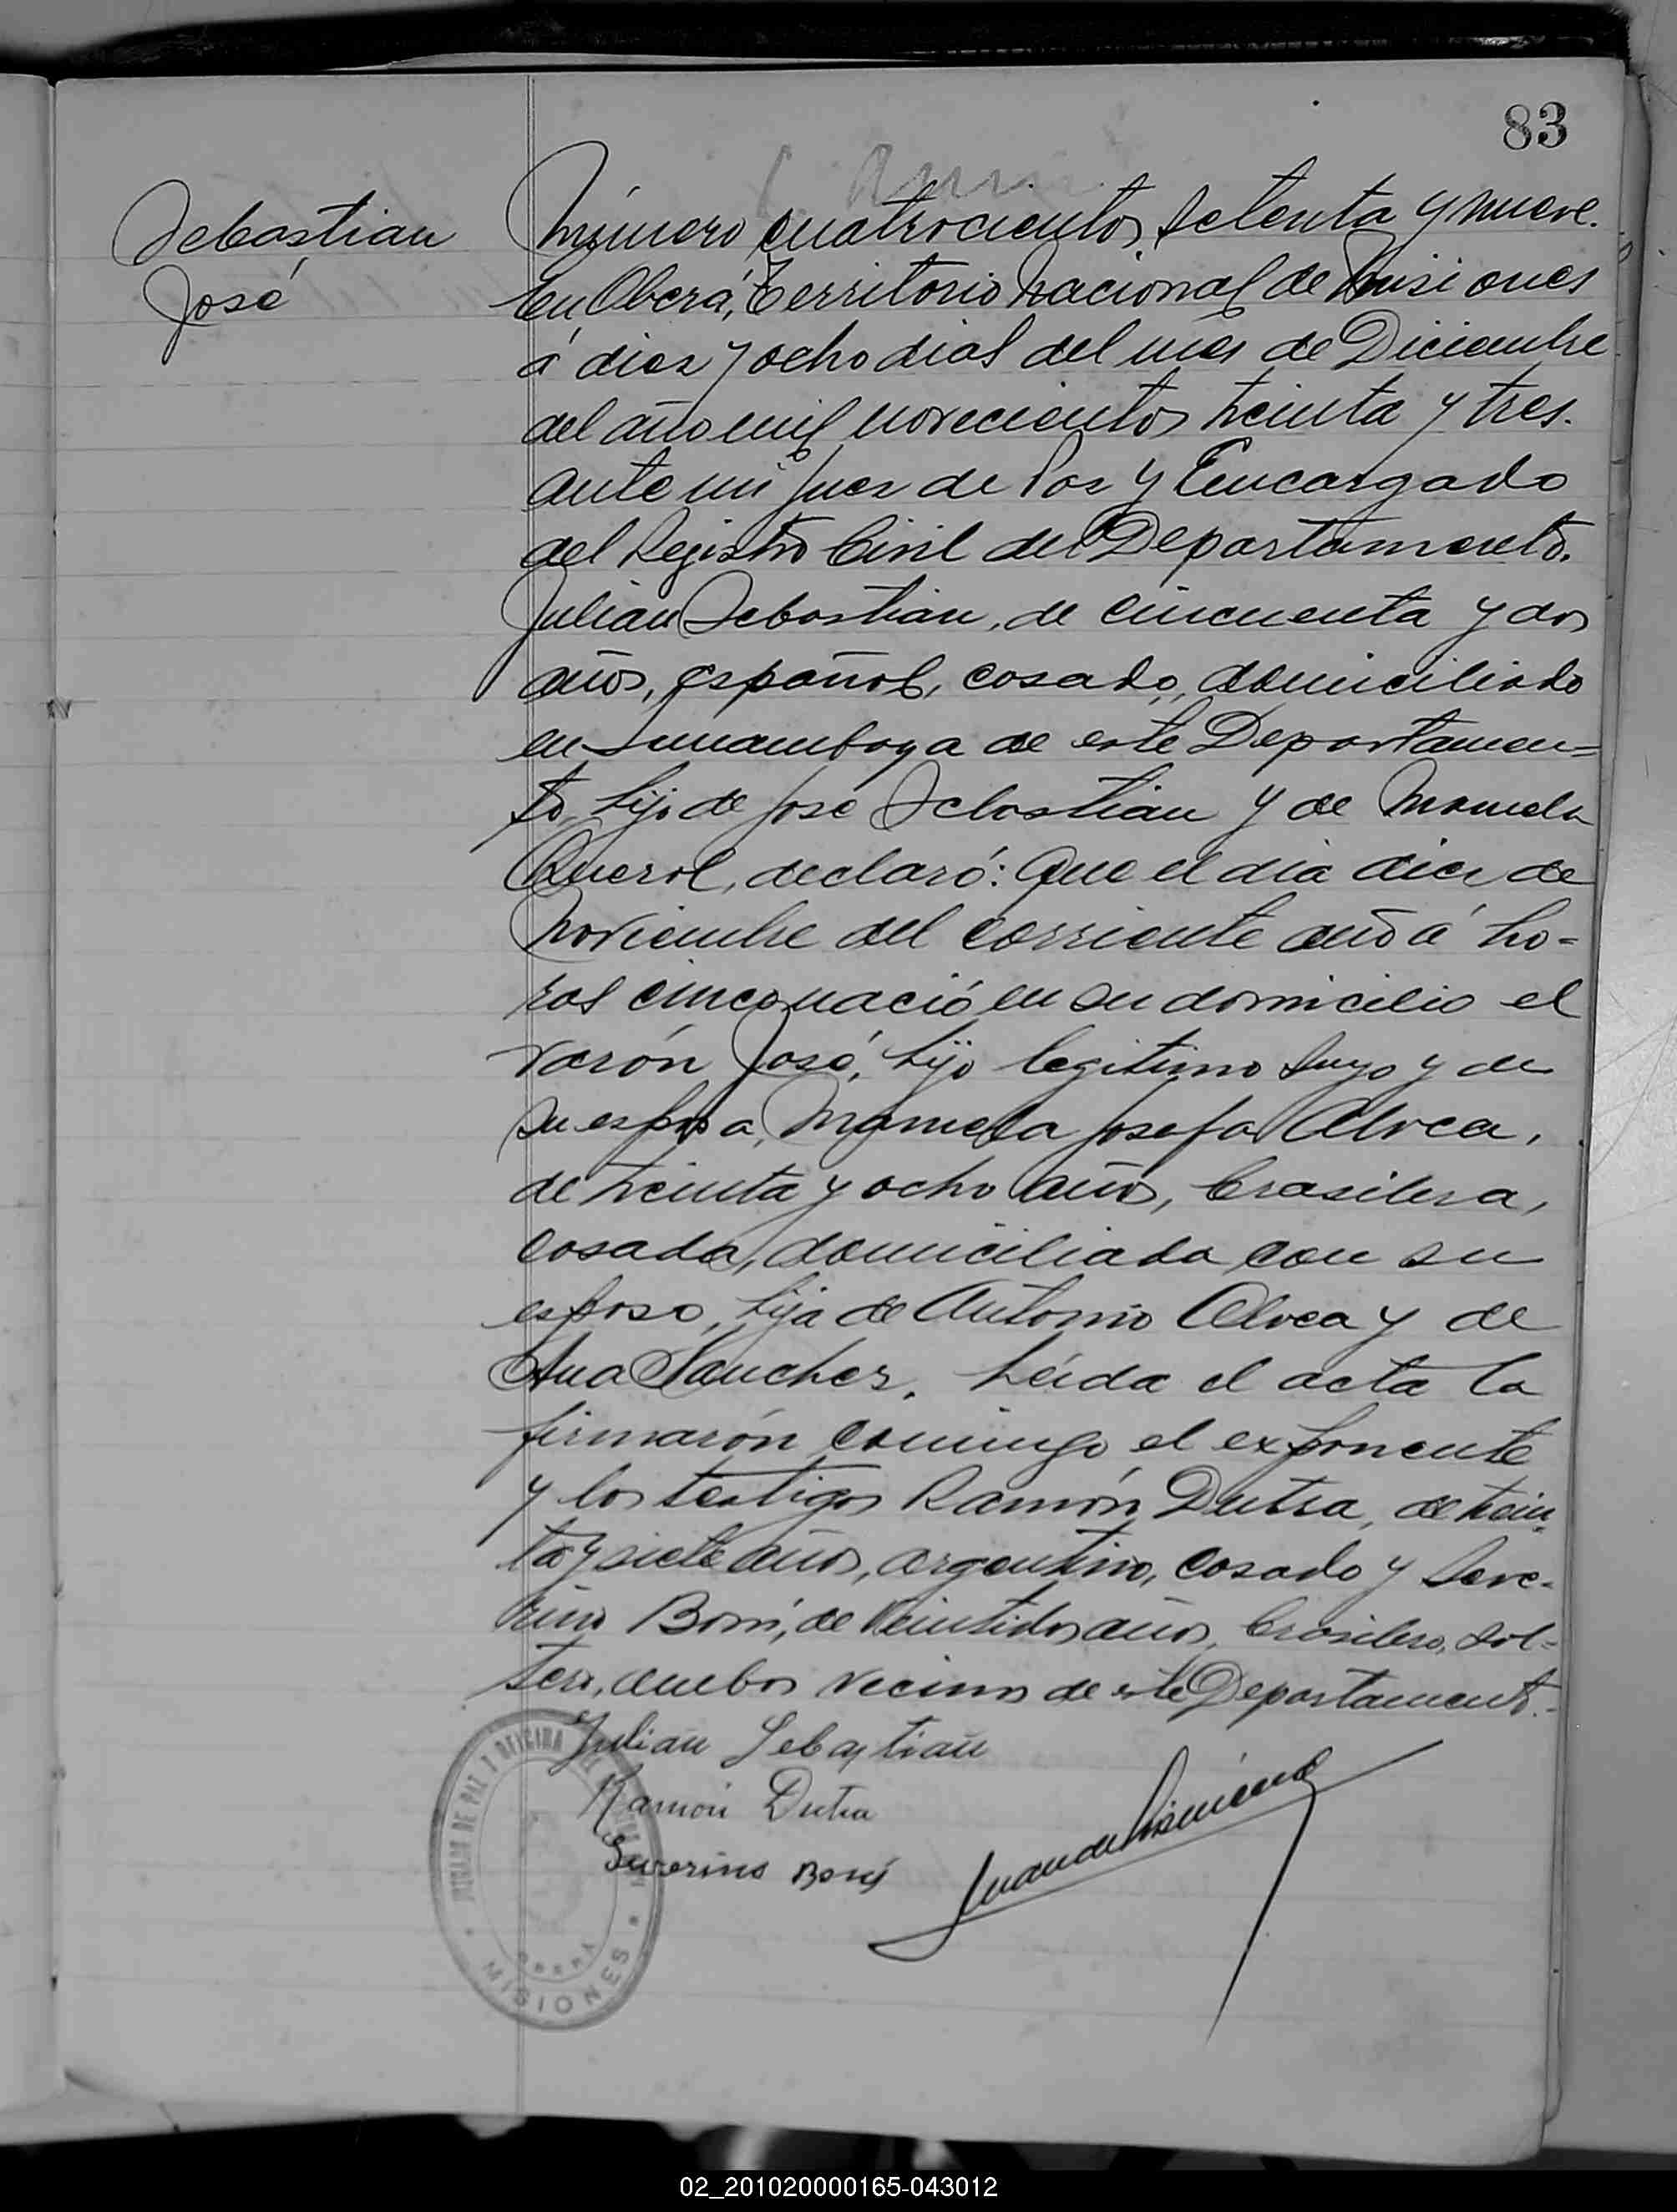 83
Sebastian
José
Número cuatrocientos setenta y nueve.
En Oberá, Territorio Nacional de Misiones
á diez y ocho dias del mes de Diciembre
del año mil novecientos treinta y tres.
ante mi Juez de Paz y Encargado
del Registro Civil del Departamento.
Julian Sebastian, de cincuenta y dos
años, español, casado, domiciliado
en de este Departamen=
to, hijo de José Sebastian y de Manuela
Querol, declaró: Que el dia diez de
Noviembre del corriente año á ho=
ras cinco nació en su domicilio el
varón José, hijo legitimo suyo y de
su esposa, Manuela Josefa Alvea,
de treinta y ocho años, brasilera,
casada, domiciliada con su
esposo, hija de Antonio Alvea y de
Ana Sanchez. Leida el acta la
firmarón conmigo el exponente
y los testigos Ramón Dutra, de trein=
ta y siete años, argentino, casado y Seve=
rino Boni, de veintidos años, brasilero, sol=
tero, ambos vecinos de este Departamento.-
Julian Sebastian
Ramón Dutra
Severino Boni
JUZGADO DE PAZ Y OFICINA
OBERA
MISIONES
02_201020000165-043012